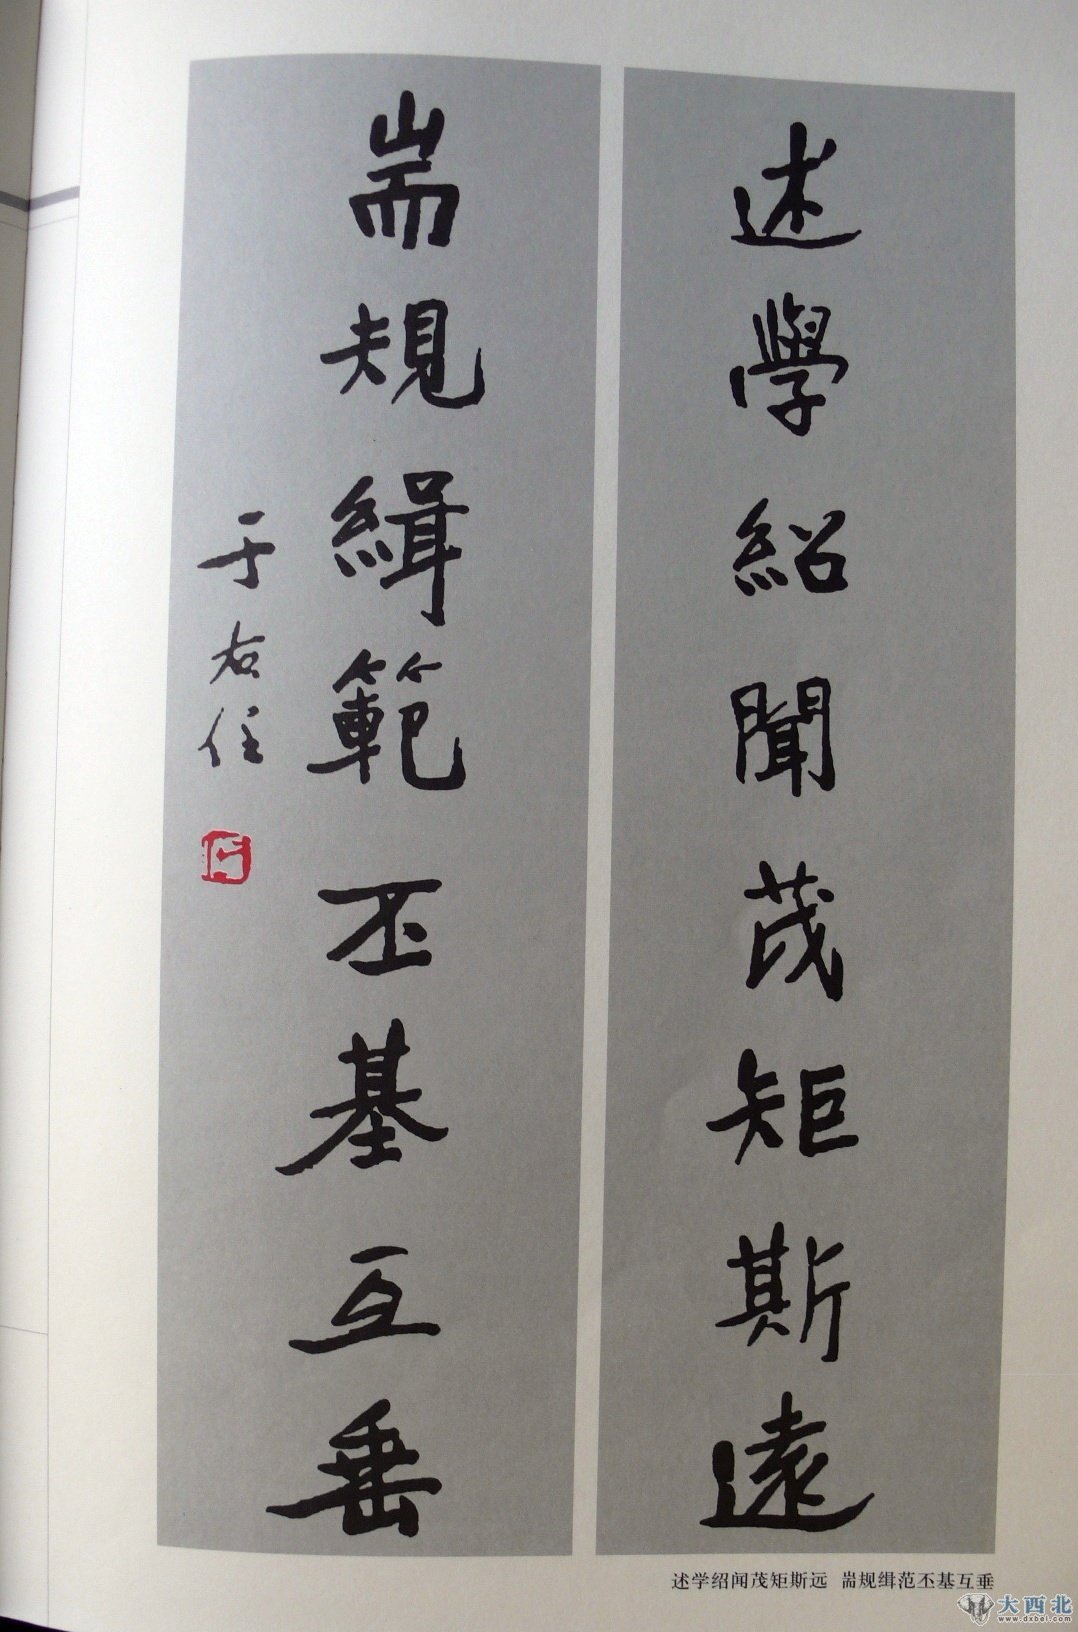 述學紹聞茂矩斯遠
耑規緝範丕基互垂
于右任
述学绍闻茂矩斯远 耑规缉范丕基互垂
大西北
www.dxbei.com